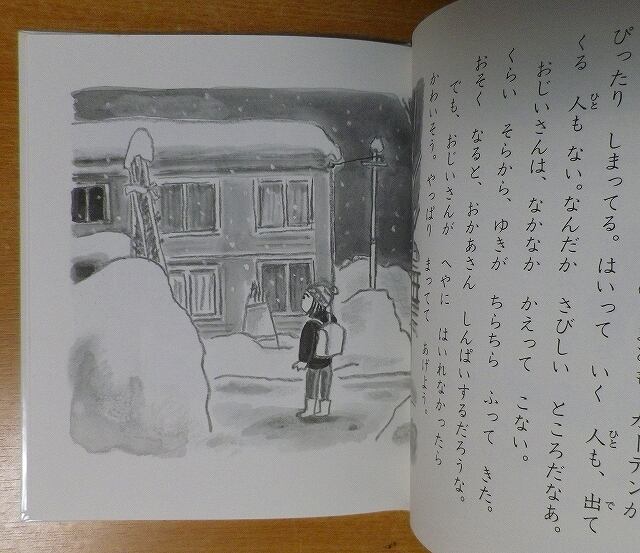 カーテンが
ぴったり しまってる。はいって いく 人も、出て
くる 人も ない。なんだか さびしい ところだなあ。
おじいさんは、なかなか かえって こない。
くらい そらから、ゆきが ちらちら ふって きた。
おそく なると、おかあさん しんぱいするだろうな。
でも、おじいさんが へやに はいれなかったら
かわいそう。やっぱり まってて あげよう。